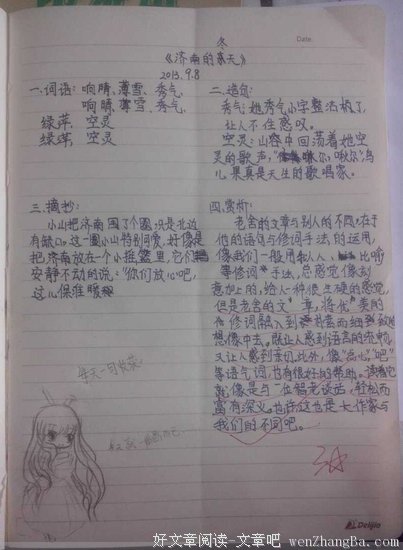 Date.
冬
《济南的春天》
2013.9.8
一.词语：响晴、薄雪、秀气、
响晴、薄雪、秀气、
绿萍、空灵
绿萍、空灵
二.造句：
秀气：她秀气小字整洁极了，
让人不住感叹。
空灵：山谷中回荡着她空
灵的歌声，“啾尔，啾尔”鸟
儿果真是天生的歌唱家。
三.摘抄：
小山把济南围了个圈，只是北边
有缺口。这一圈小山特别可爱，好像是
把济南放在个小摇篮里，它们
安静不动的说：“你们放心吧，
这儿保准暖
四.赏析：
老舍的文章与别人的不同，在于
他的语句与修词手法，的运用，
像我们一般用拟人、比喻
等修词手法，总感觉像刻
意加上的，给人一种很生硬的感觉，
但是老舍的文章，将优美的
修词融入到朴素而细致的
想像中去，既让人感到语言的
又让人感到亲切，此外，像“点心”，“吧”
等语气词，也有很好的帮助。读着它
就像是与一位智老谈话，轻松而
富有深义。也许这也是大作家与
我们的不同吧。
Delijia
好文章阅读-文章吧 wenZhangBa.com